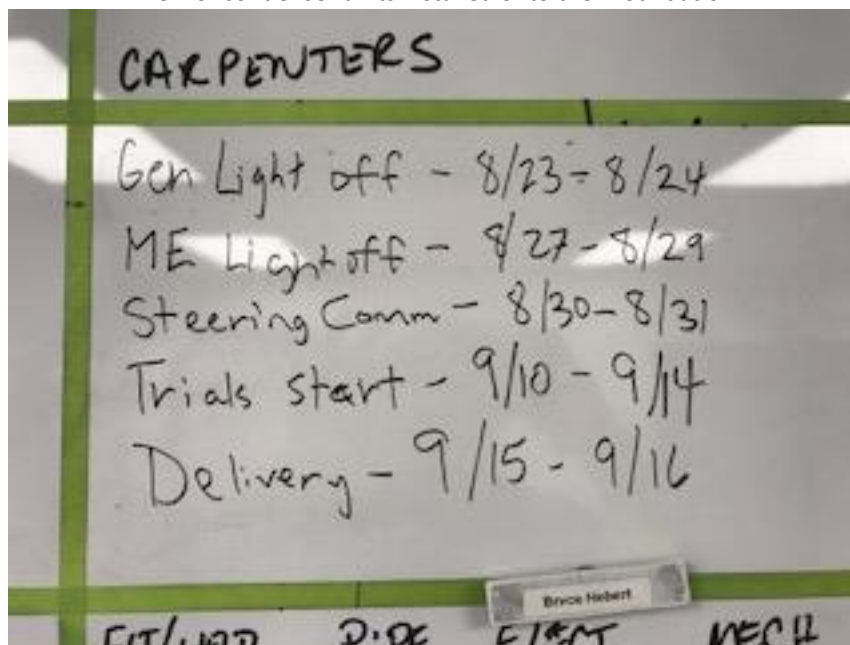 CARPENTERS
Gen Light off - 8/23 - 8/24
ME Light off - 8/27 - 8/29
Steering Comm - 8/30 - 8/31
Trials start - 9/10 - 9/14
Delivery - 9/15 - 9/16
Bryce Hebert
PIPE ELECT MECH